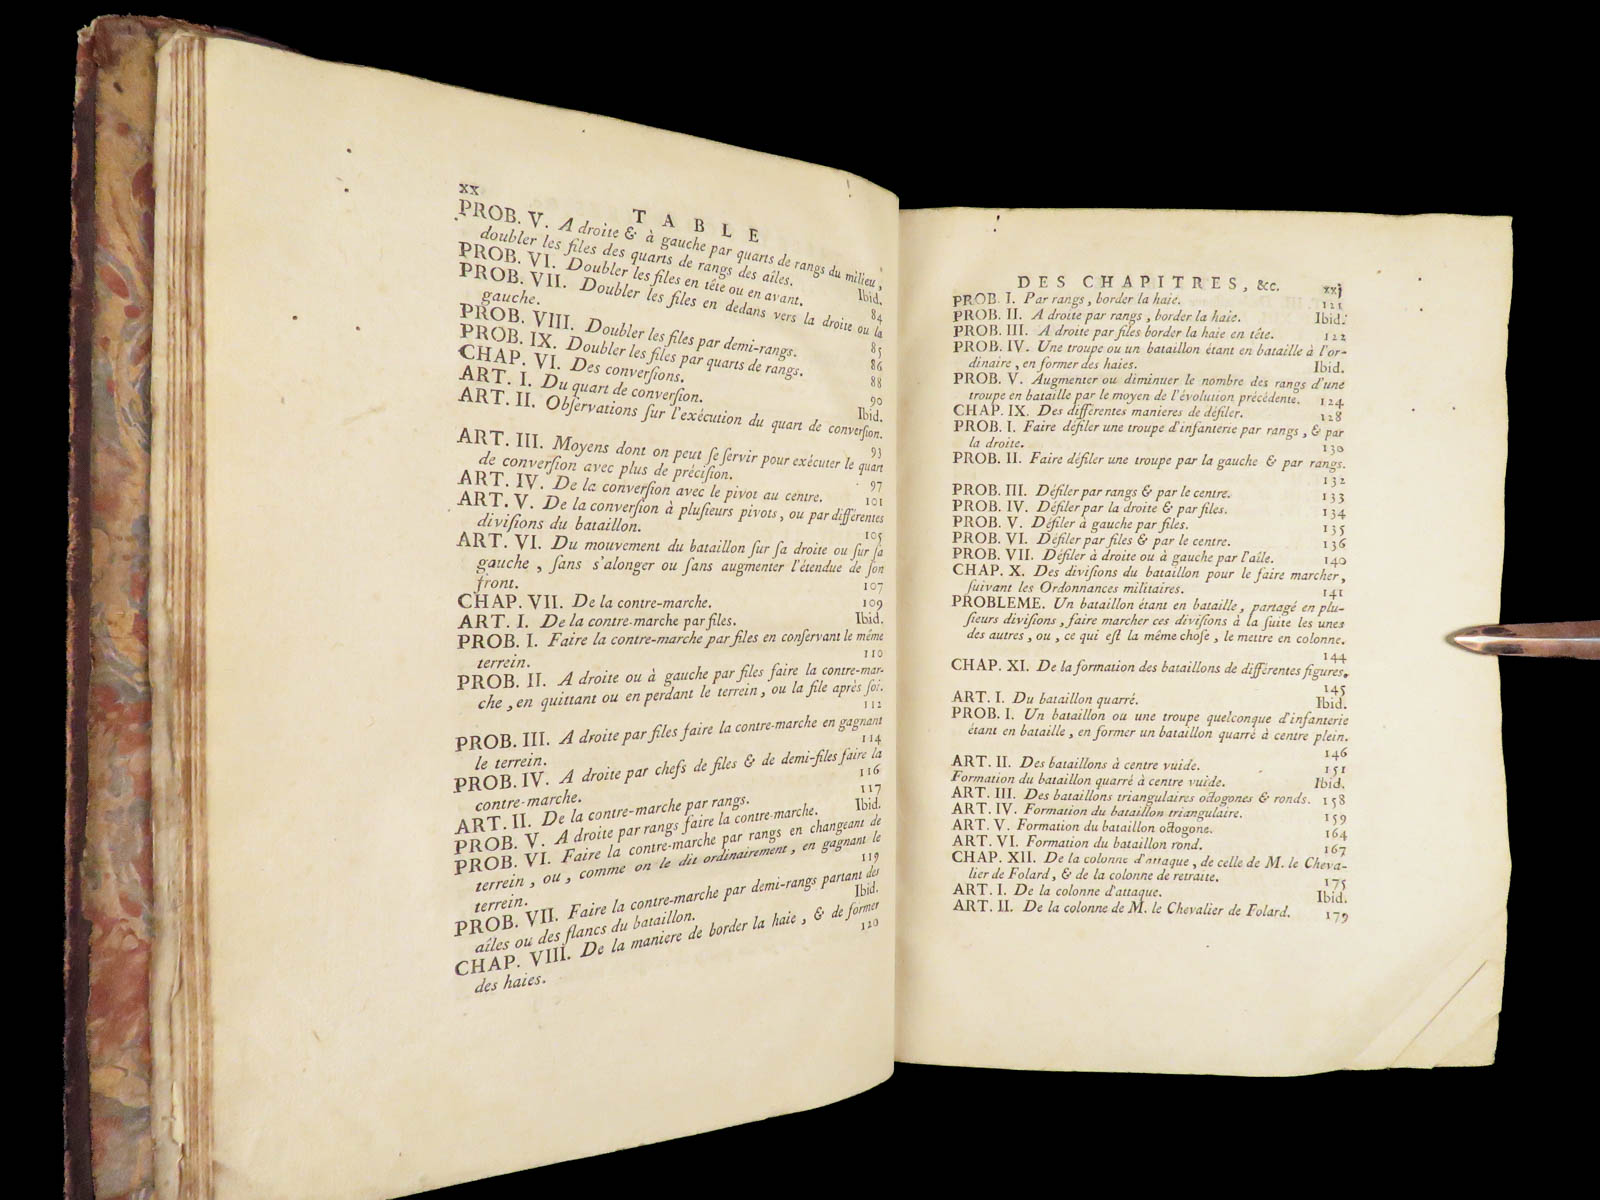 xx
TABLE
PROB. V. A droite & à gauche par quarts de rangs du milieu,
doubler les files des quarts de rangs des aîles. Ibid.
PROB. VI. Doubler les files en tête ou en avant. 84
PROB. VII. Doubler les files en dedans vers la droite ou la
gauche. 85
PROB. VIII. Doubler les files par demi-rangs. 86
PROB. IX. Doubler les files par quarts de rangs. 88
CHAP. VI. Des conversions. 90
ART. I. Du quart de conversion. Ibid.
ART. II. Observations sur l'exécution du quart de conversion.
93
ART. III. Moyens dont on peut se servir pour exécuter le quart
de conversion avec plus de précision. 97
ART. IV. De la conversion avec le pivot au centre. 101
ART. V. De la conversion à plusieurs pivots, ou par différentes
divisions du bataillon. 105
ART. VI. Du mouvement du bataillon sur sa droite ou sur sa
gauche, sans s'alonger ou sans augmenter l'étendue de son
front. 107
CHAP. VII. De la contre-marche. 109
ART. I. De la contre-marche par files. Ibid.
PROB. I. Faire la contre-marche par files en conservant le même
terrein. 110
PROB. II. A droite ou à gauche par files faire la contre-mar-
che, en quittant ou en perdant le terrein, ou la file après soi.
112
PROB. III. A droite par files faire la contre-marche en gagnant
le terrein. 114
PROB. IV. A droite par chefs de files & de demi-files faire la
contre-marche. 116
ART. II. De la contre-marche par rangs. 117
PROB. V. A droite par rangs faire la contre-marche. Ibid.
PROB. VI. Faire la contre-marche par rangs en changeant de
terrein, ou, comme on le dit ordinairement, en gagnant le
terrein. 119
PROB. VII. Faire la contre-marche par demi-rangs partant des
aîles ou des flancs du bataillon. Ibid.
CHAP. VIII. De la maniere de border la haie, & de former
des haies. 120
DES CHAPITRES, &c. xxj
PROB. I. Par rangs, border la haie. 121
PROB. II. A droite par rangs, border la haie. Ibid.
PROB. III. A droite par files border la haie en tête. 122
PROB. IV. Une troupe ou un bataillon étant en bataille à l'or-
dinaire, en former des haies. Ibid.
PROB. V. Augmenter ou diminuer le nombre des rangs d'une
troupe en bataille par le moyen de l'évolution précédente. 124
CHAP. IX. Des différentes manieres de défiler. 128
PROB. I. Faire défiler une troupe d'infanterie par rangs, & par
la droite. 130
PROB. II. Faire défiler une troupe par la gauche & par rangs.
132
PROB. III. Défiler par rangs & par le centre. 133
PROB. IV. Défiler par la droite & par files. 134
PROB. V. Défiler à gauche par files. 135
PROB. VI. Défiler par files & par le centre. 136
PROB. VII. Défiler à droite ou à gauche par l'aîle. 140
CHAP. X. Des divisions du bataillon pour le faire marcher,
suivant les Ordonnances militaires. 141
PROBLEME. Un bataillon étant en bataille, partagé en plu-
sieurs divisions, faire marcher ces divisions à la suite les unes
des autres, ou, ce qui est la même chose, le mettre en colonne.
144
CHAP. XI. De la formation des bataillons de différentes figures.
145
ART. I. Du bataillon quarré. Ibid.
PROB. I. Un bataillon ou une troupe quelconque d'infanterie
étant en bataille, en former un bataillon quarré à centre plein.
146
ART. II. Des bataillons à centre vuide. 151
Formation du bataillon quarré à centre vuide. Ibid.
ART. III. Des bataillons triangulaires octogones & ronds. 158
ART. IV. Formation du bataillon triangulaire. 159
ART. V. Formation du bataillon octogone. 164
ART. VI. Formation du bataillon rond. 167
CHAP. XII. De la colonne d'attaque, de celle de M. le Cheva-
lier de Folard, & de la colonne de retraite. 175
ART. I. De la colonne d'attaque. Ibid.
ART. II. De la colonne de M. le Chevalier de Folard. 179